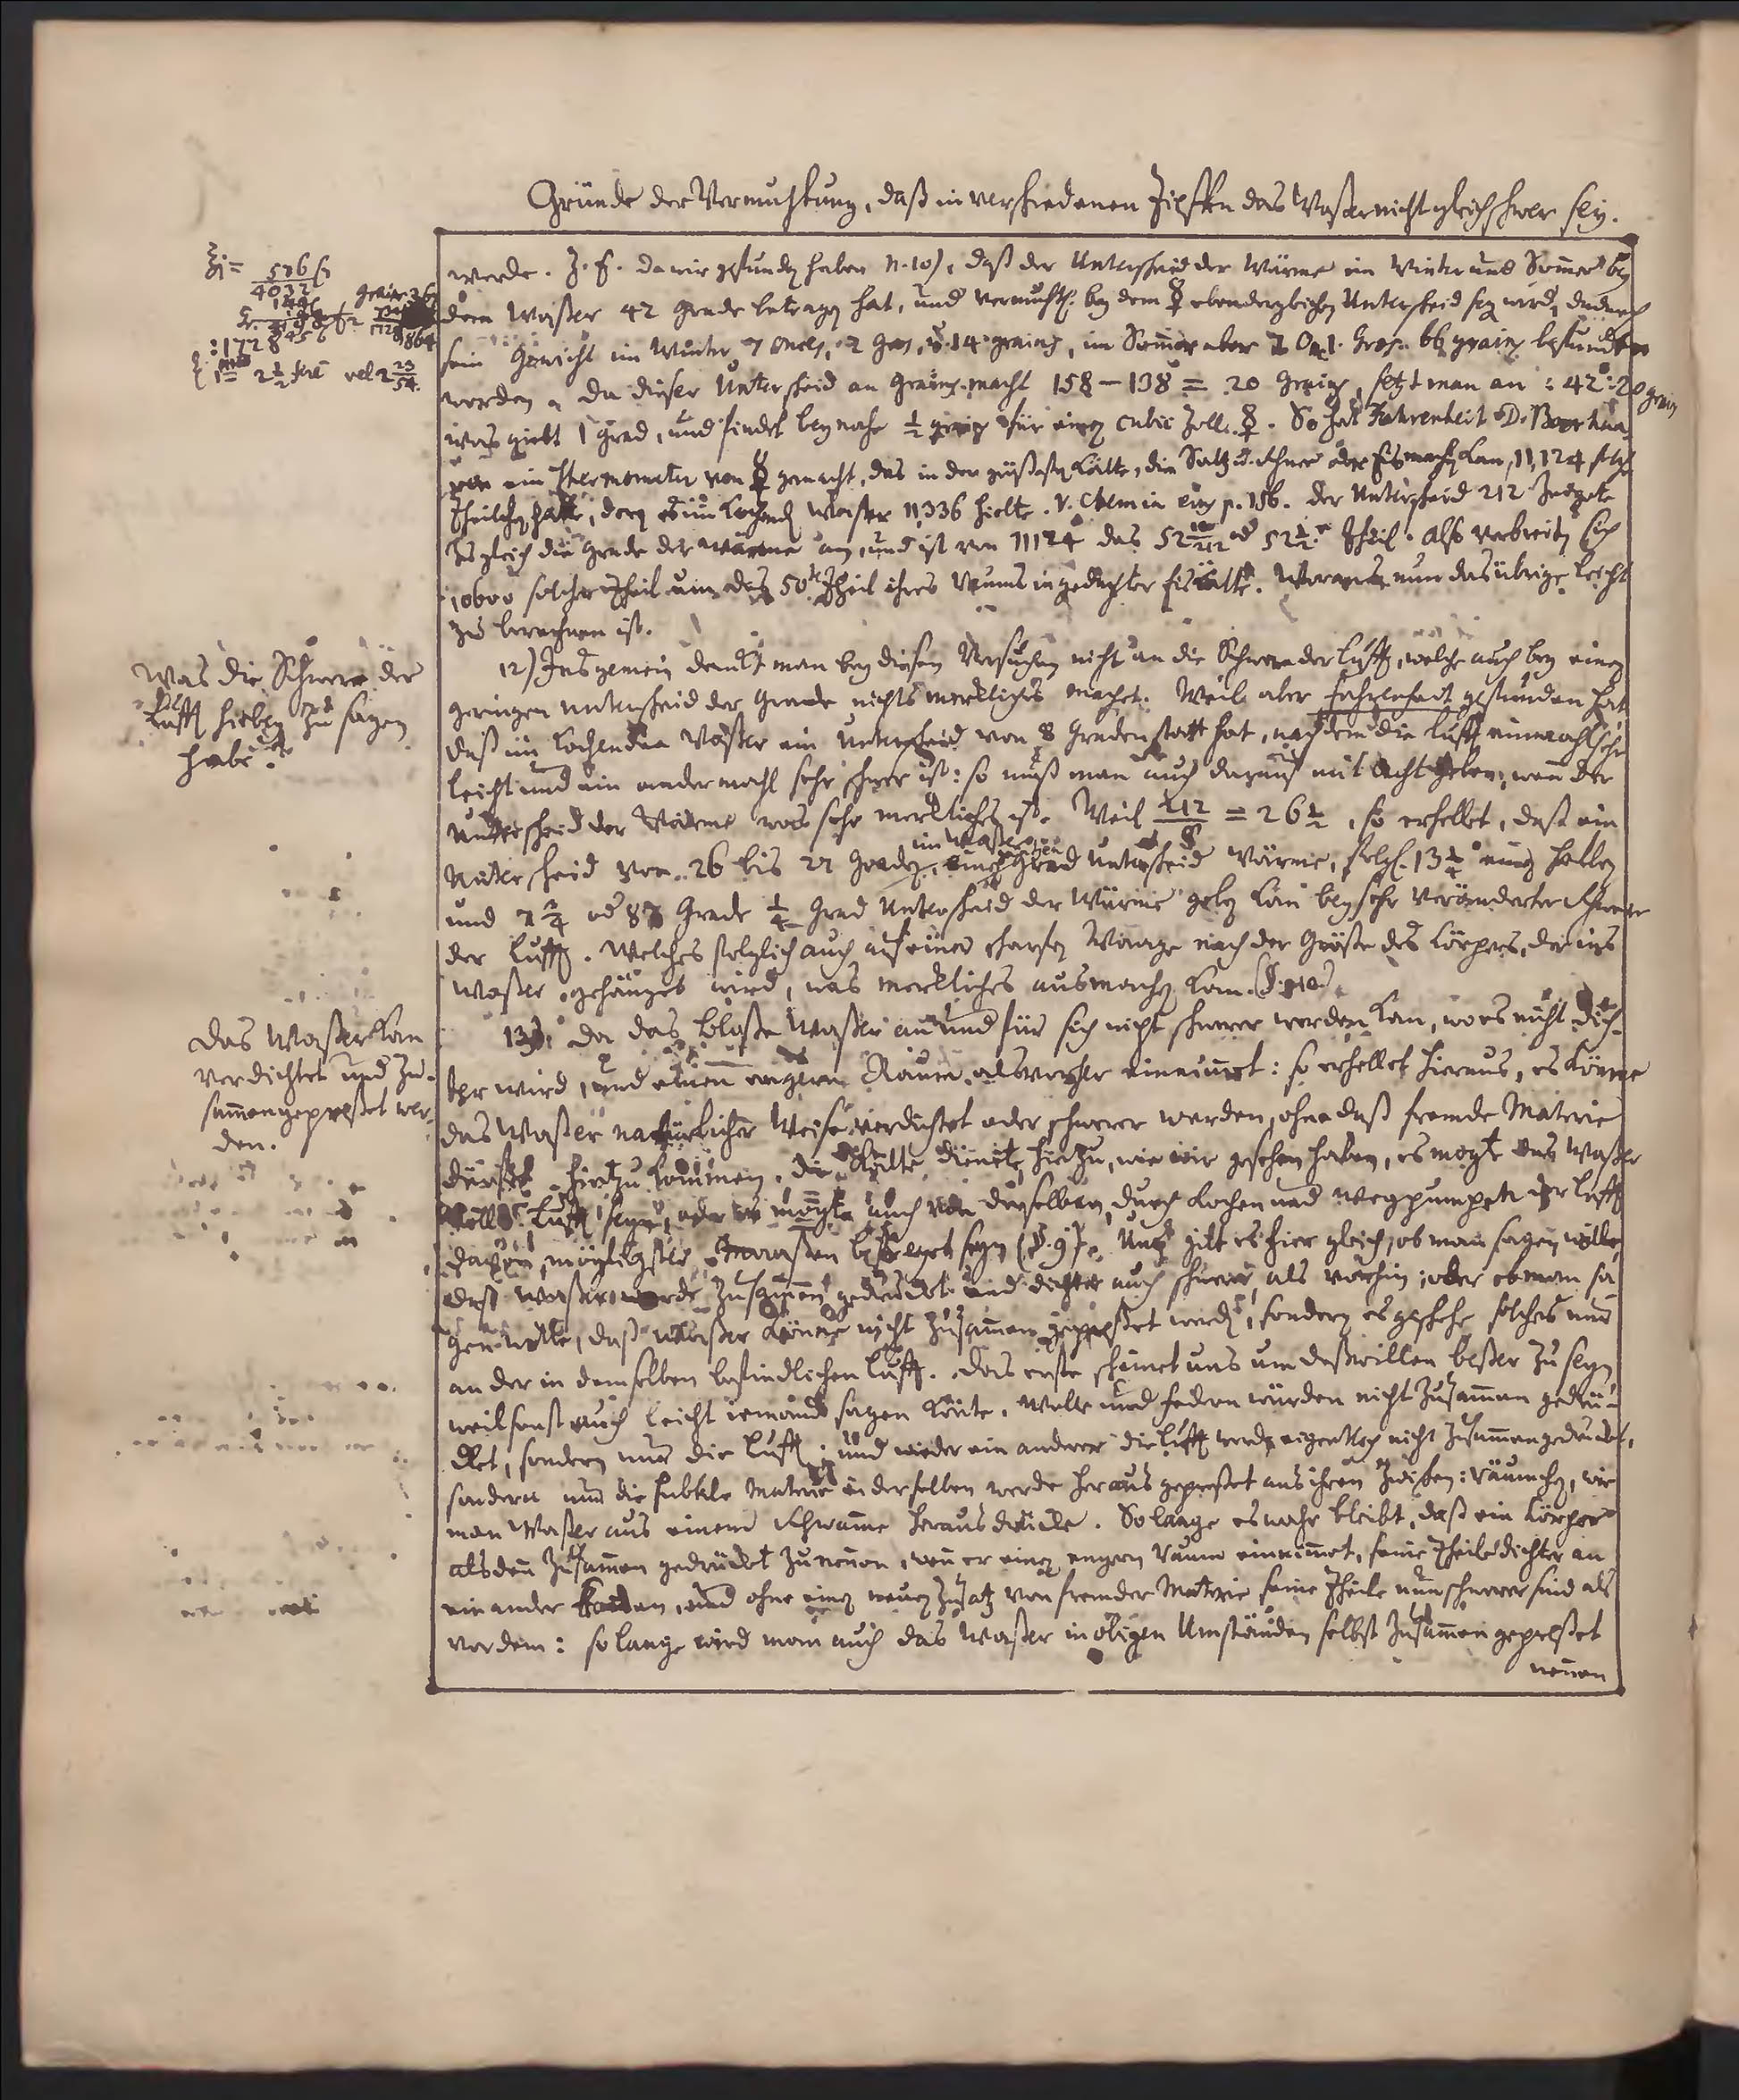 Gründe der Vermuhtung, daß in verschiedenen Zeiten das Waßer nicht gleich schwer sey.
werde. Z. E. da wir gefunden haben n. 10), daß der Unterscheid der Wärme im Winter und Sommer bey
dem Waßer 42 Grade betragen hat, und vermuthl. bey dem ☿ ebendergleichen Unterscheid seyn wird, dadurch
sein Gewicht im Winter 7 Onces, 2 Gros, u. 14 grains, im Sommer aber 7 On. 1. Gros. 66 grains befunden
worden. Da dieser Unterscheid an Grains macht 158 – 138 = 20 Grains, setzt man an: 42°: 20 grains
was giebt 1 Grad, und findet beynahe ½ grain für einen cubic Zoll ☿. So hat Fahrenheit D. Boerhaa-
ven ein Thermometer von ☿ gemacht, das in der größesten Kälte, die Saltz u. Schnee oder Eis machen kan, 11,124 solche
Theilchen hatte, deren es im kochenden Waßer 11,336 hielte. V. Chemia eius p. 156. Der Unterscheid 212 zeigete
zugleich die Grade der Wärme an, und ist von 11124 das 52 100/212 od 52½te Theil. Also verbreiten sich
10600 solcher Theil um das 50te Theil ihres Raums in gedachter Eiskälte. Woraus nun das übrige leicht
zu berechnen ist.
Was die Schwere der
Lufft hiebey zu sagen
habe?
12) Insgemein denckt man bey diesen Versuchen nicht an die Schwere der Lufft, welche auch bey einem
geringen Unterscheid der Grade nichts merckliches machet. Weil aber Fahrenheit gefunden hat
daß im kochenden Waßer ein Unterscheid von 8 Graden statt hat, nachdem die Lufft einmahl sehr
leicht und ein andermahl sehr schwer ist: so muß man auch darauf mit Acht geben, wenn der
Unterscheid der Wärme was sehr merckliches ist. Weil 212/8 = 26½, so erhellet, daß ein
Unterscheid von 26 bis 27 Graden, im Waßer einen Grad Unterscheid Wärme, folgl. 13¼° einen halben
und 7¾ od 8 Grade ¼ Grad Unterscheid der Wärme geben kan bey sehr veränderter Schwere
der Lufft. Welches folglich auch auf einer scharfen Waage nach der Größe des Körpers, der ins
Waßer gehänget wird, was merckliches ausmachen kan. (§. 10.)
Das Waßer kan
verdichtet und zu-
sammengepreßet wer-
den.
13) Da das bloße Waßer an und für sich nicht schwerer werden kan, wo es nicht dich-
ter wird, und einen engern Raum, als vorher einnimt: so erhellet hieraus, es könne
das Waßer natürlicher Weise verdichtet oder schwerer werden, ohne daß fremde Materie
dürfte hierzu kommen. Die Kälte dienete hierzu, wie wir gesehen haben, es mogte das Waßer
voller Lufft seyn, oder es mogte auch von derselben, durch kochen und wegpumpen der Lufft
davon, möglichster Maaßen befreyet seyn (§. 9). Und gilt es hier gleich, ob man sagen wolle,
das Waßer werde zusammen gedrücket und dichter auch schwerer als vorhin; oder ob man sa-
gen wolle, das Waßer könne nicht zusammen gepreßet werden, sondern es geschehe solches nur
an der in demselben befindlichen Lufft. Das erste scheinet uns um deßwillen beßer zu seyn
weil sonst auch leicht iemand sagen könte, Wolle und Federn würden nicht zusammen gedrü-
cket, sondern nur die Lufft; und wieder ein anderer die Lufft werde eigentlich nicht zusammengedrücket,
sondern nur die subtile Materie in derselben werde heraus gepreßet aus ihren Zwischen-räumchen, wie
man Waßer aus einem Schwamme herausdrücke. So lange es wahr bleibt, daß ein Körper
alsdenn zusammen gedrücket zu nennen, wenn er einen engern Raum einnimmet, seine Theile dichter an
einander kommen, und ohne einen neuen Zusatz von fremder Materie seine Theile nun schwerer sind als
vordem: so lange wird man auch das Waßer in obigen Umständen selbst zusammen gepreßet
nennen